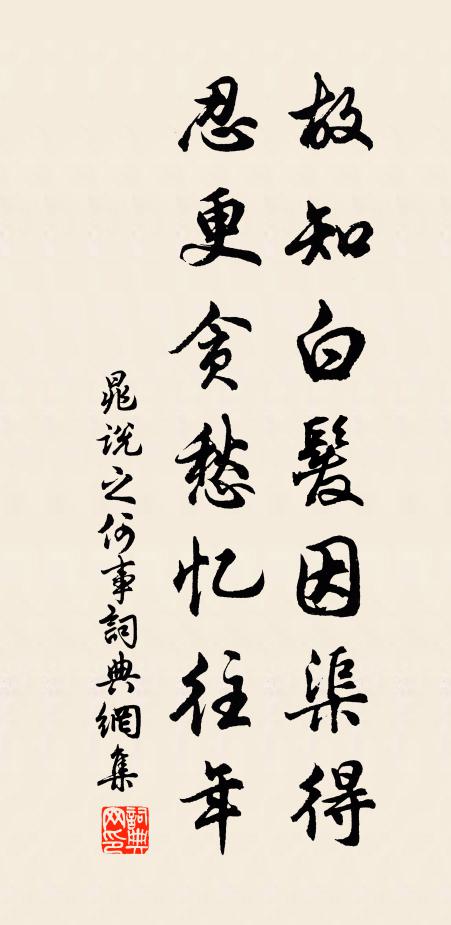 故知白髮因渠得
忍更貪愁忆往年
晁說之何事詞典網集
詞典网印